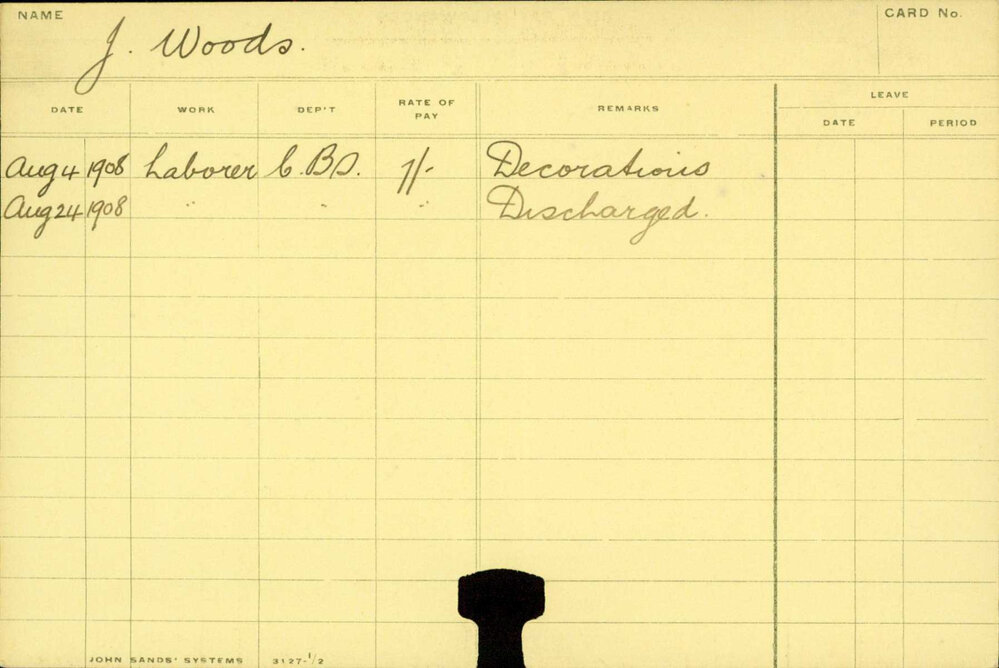 NAME
J. Woods.
CARD No.
DATE WORK DEP'T RATE OF PAY REMARKS LEAVE
DATE PERIOD
Aug 4 1908 Laborer C.B.S. 7/- Decorations
Aug 24 1908 " " " Discharged.
JOHN SANDS' SYSTEMS 3127-1/2